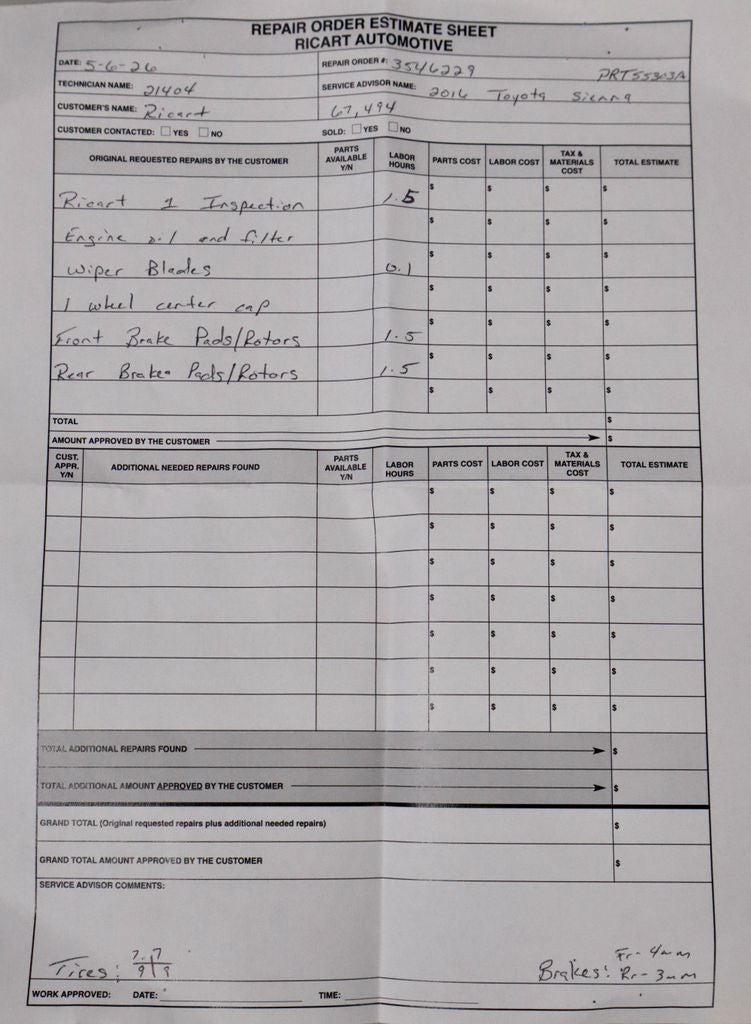 REPAIR ORDER ESTIMATE SHEET
RICART AUTOMOTIVE
DATE: 5-6-26 REPAIR ORDER #: 3546229 PRT55303A
TECHNICIAN NAME: 21404 SERVICE ADVISOR NAME: 2016 Toyota Sienna
CUSTOMER'S NAME: Ricart 67,494
CUSTOMER CONTACTED: YES NO SOLD: YES NO
ORIGINAL REQUESTED REPAIRS BY THE CUSTOMER PARTS AVAILABLE Y/N LABOR HOURS PARTS COST LABOR COST TAX & MATERIALS COST TOTAL ESTIMATE
Ricart 1 Inspection 1.5 $ $ $ $
Engine oil and filter $ $ $ $
Wiper Blades 0.1 $ $ $ $
1 wheel center cap $ $ $ $
Front Brake Pads/Rotors 1.5 $ $ $ $
Rear Brakes Pads/Rotors 1.5 $ $ $ $
$ $ $ $
TOTAL $
AMOUNT APPROVED BY THE CUSTOMER $
CUST. APPR. Y/N ADDITIONAL NEEDED REPAIRS FOUND PARTS AVAILABLE Y/N LABOR HOURS PARTS COST LABOR COST TAX & MATERIALS COST TOTAL ESTIMATE
$ $ $ $
$ $ $ $
$ $ $ $
$ $ $ $
$ $ $ $
$ $ $ $
$ $ $ $
TOTAL ADDITIONAL REPAIRS FOUND $
TOTAL ADDITIONAL AMOUNT APPROVED BY THE CUSTOMER $
GRAND TOTAL (Original requested repairs plus additional needed repairs) $
GRAND TOTAL AMOUNT APPROVED BY THE CUSTOMER $
SERVICE ADVISOR COMMENTS:
7 7 Fr- 4mm
Tires: 9 9 Brakes: Rr- 3mm
WORK APPROVED: DATE: TIME: